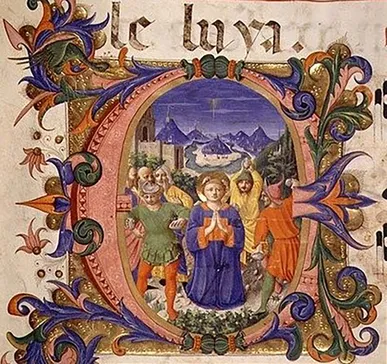 le luya.